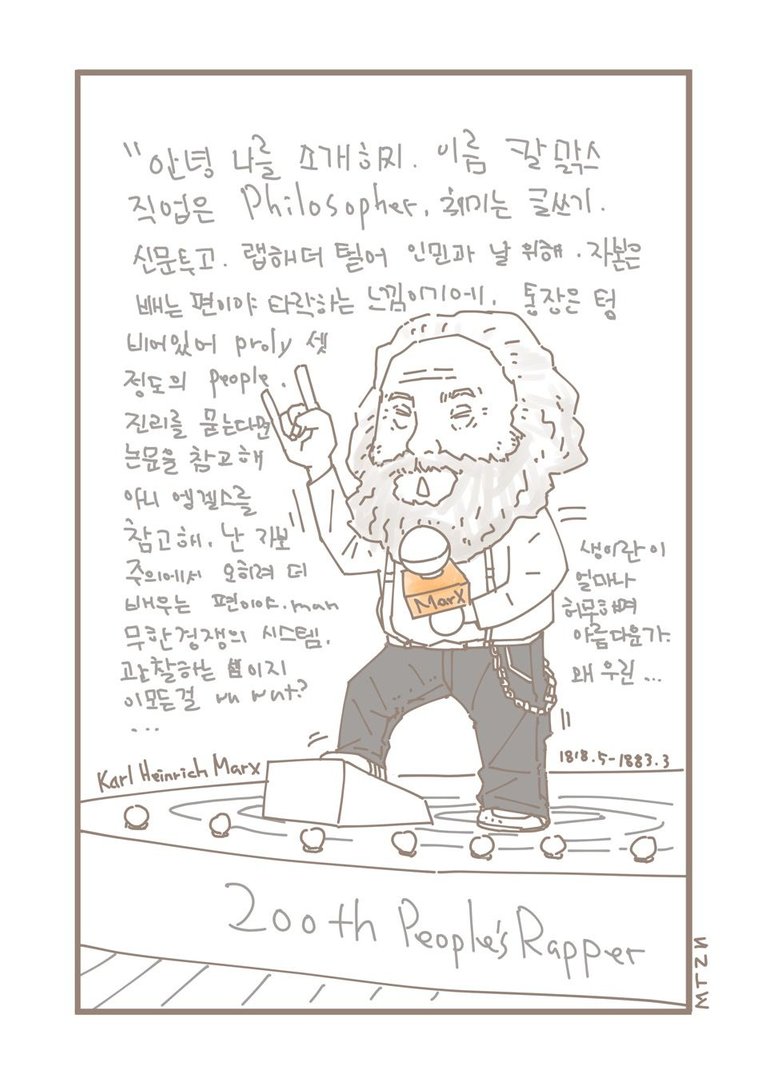 "안녕 나를 소개하지. 이름 칼 맑스
직업은 Philosopher, 취미는 글쓰기.
신문투고. 랩해 더 털어 인민과 날 위해. 자본은
빼는 편이야 타락하는 느낌이기에. 통장은 텅
비어있어 proly 셋
정도의 people.
진리를 묻는다면
논문을 참고해
아니 엥겔스를
참고해. 난 자본
주의에서 오히려 더
배우는 편이야. man
무한경쟁의 시스템.
관찰하는 셈이지
이 모든걸 uh what?
...
생이란 이
얼마나
허무하며
아름다운가.
왜 우린 ...
Marx
Karl Heinrich Marx
1818.5-1883.3
200th People's Rapper